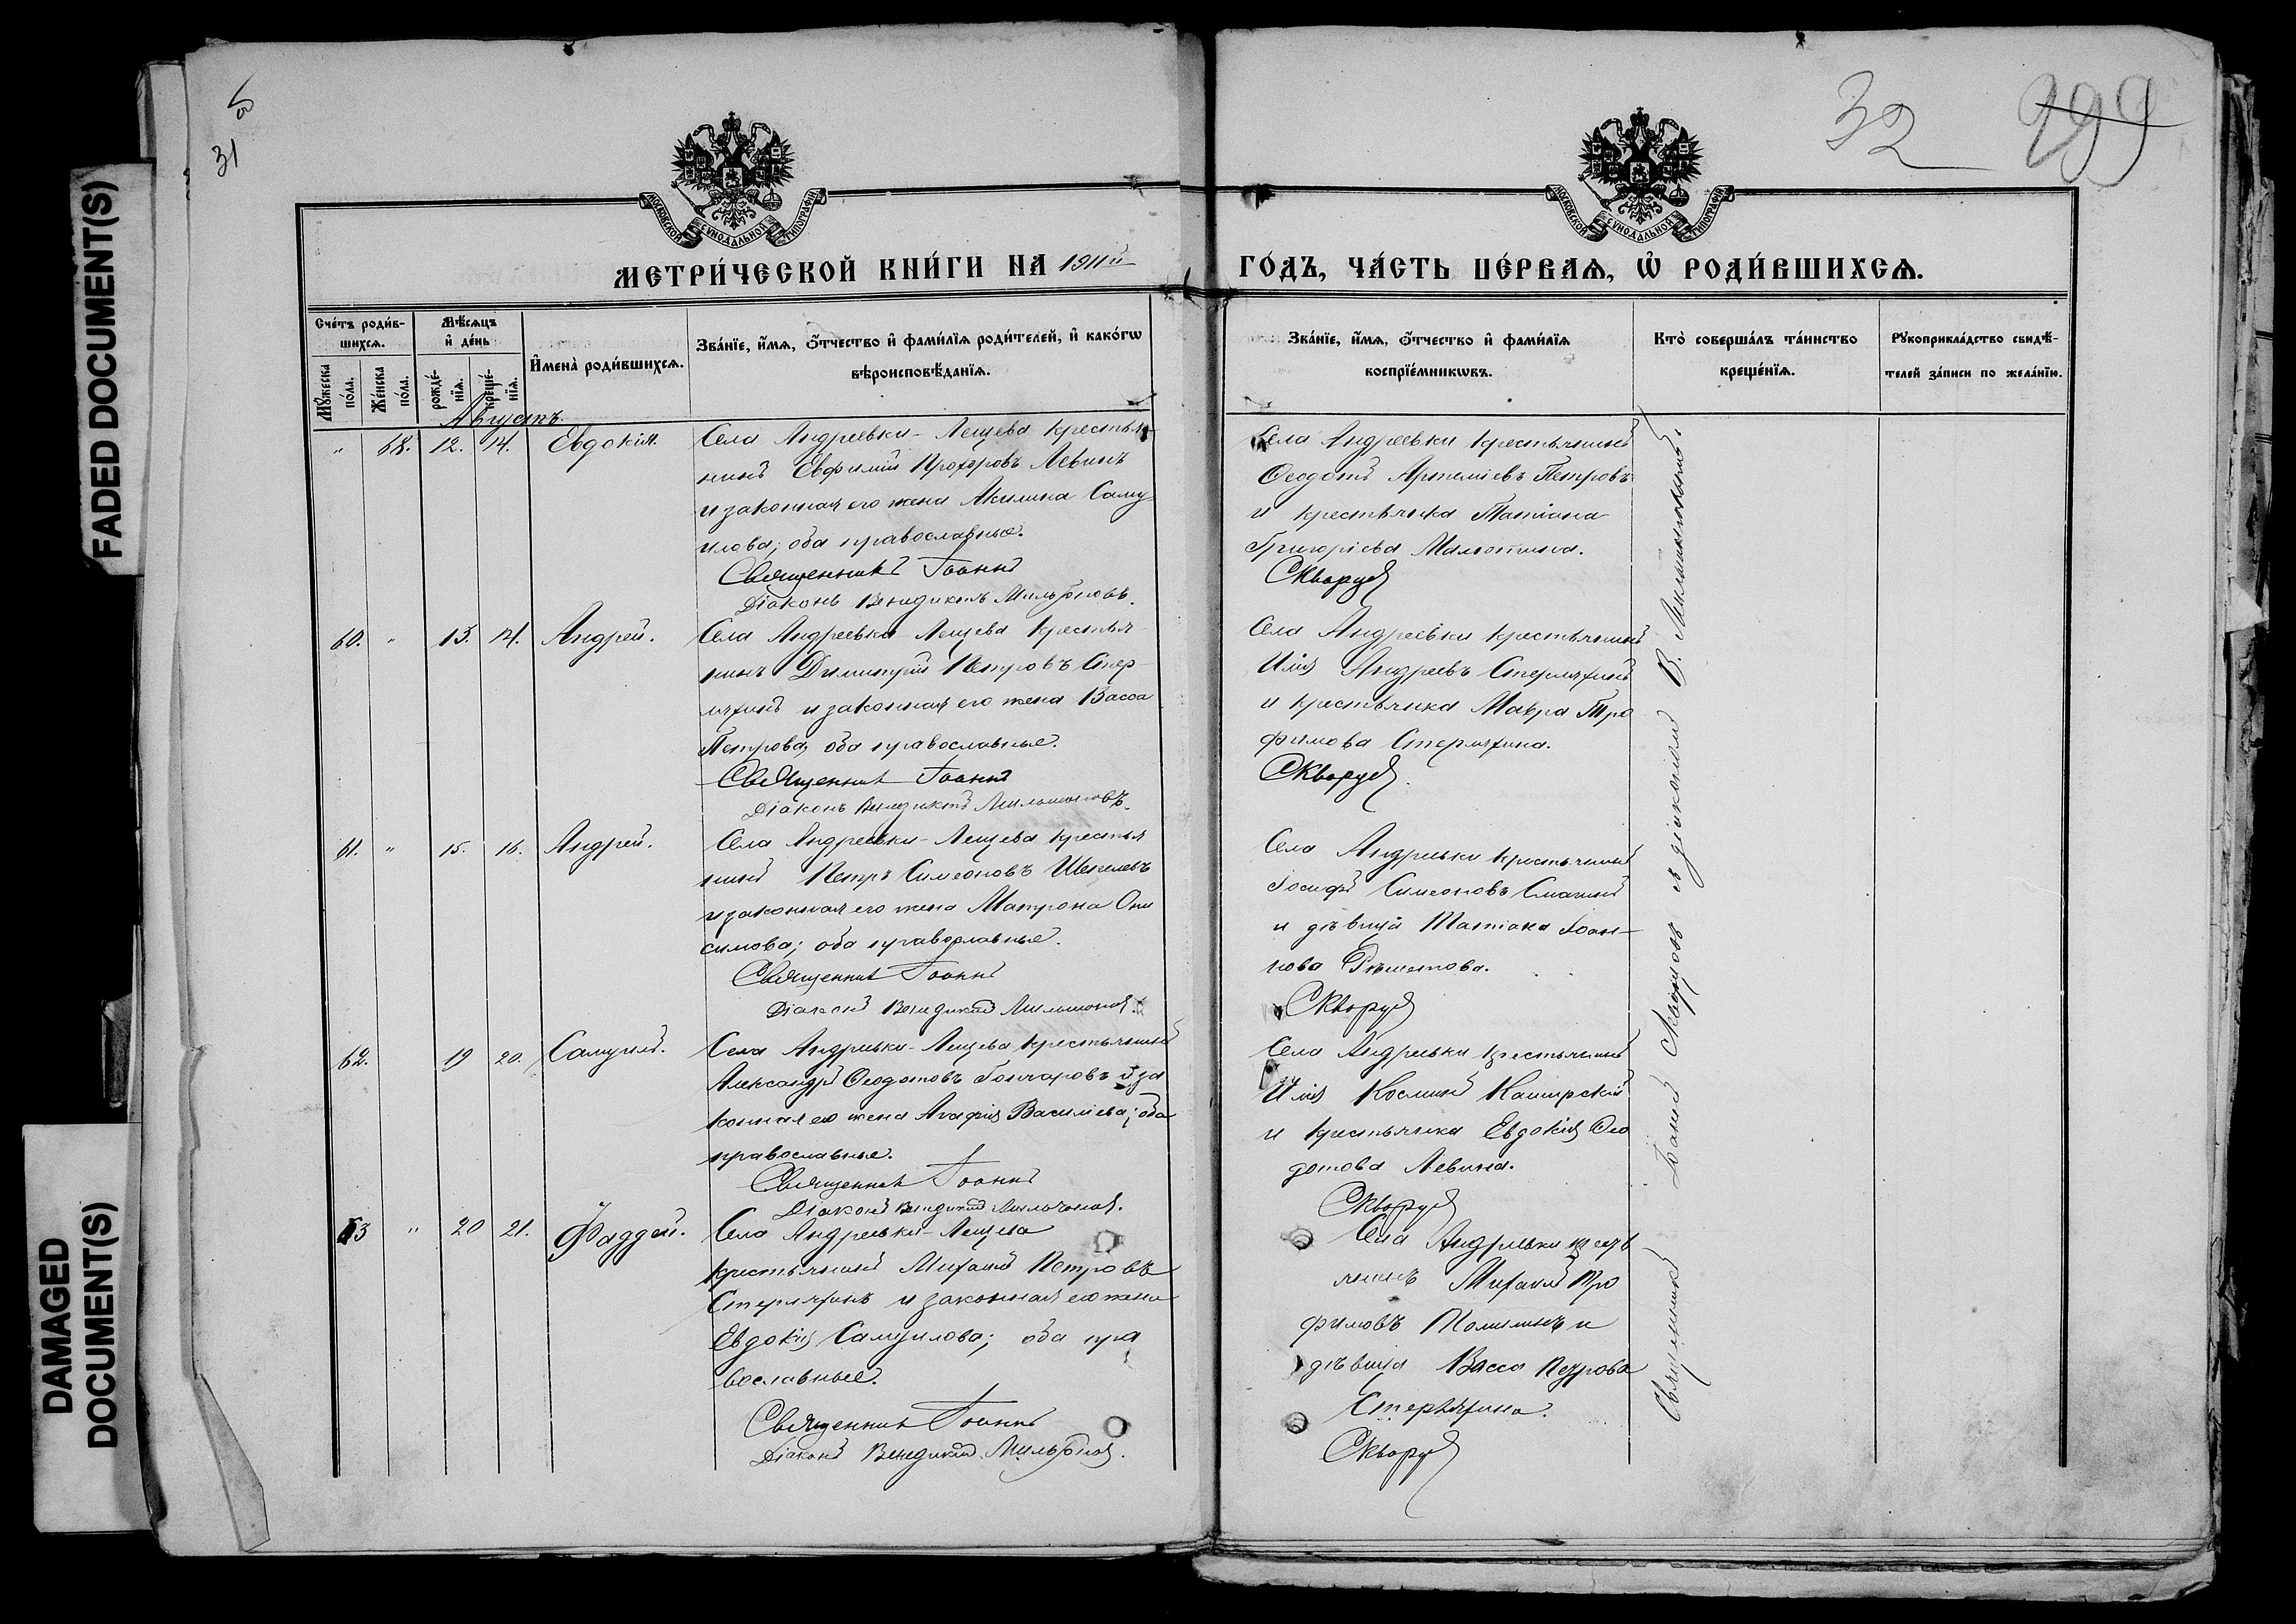 FADED DOCUMENT(S)
DAMAGED
DOCUMENT(S)
31
32 299
МОСКОВСКОЙ СУНОДАЛЬНОЙ ТИПОГРАФІИ
МОСКОВСКОЙ СУНОДАЛЬНОЙ ТИПОГРАФІИ
МЕТРИ́ЧЕСКОЙ КНИ́ГИ НА 1911й
ГО́ДЪ, ЧА́СТЬ ПЕ́РВАѦ, Ѡ҆ РОДИ́ВШИХСѦ.
Сче́тъ роди́в-
шихсѧ.
Мꙋ́жеска по́ла.
Же́нска по́ла.
Мѣ́сѧцъ
и҆ де́нь
рожде́-
нїѧ.
креще́-
нїѧ.
И҆мена̀ роди́вшихсѧ.
Зва́нїе, и҆́мѧ, ѻ҆́тчество и҆ фами́лїѧ роди́телей, и҆ како́гѡ
вѣроисповѣ́данїѧ.
Зва́нїе, и҆́мѧ, ѻ҆́тчество и҆ фами́лїѧ
воспрїе́мникѡвъ.
Кто̀ соверша́лъ та́инство
креще́нїѧ.
Рꙋкоприкла́дство свидѣ́-
телей за́писи по жела́нїю.
Августъ.
" 68. 12. 14. Евдокія.
Села Андреевки-Лещева крестья-
нинъ Евфимій Прохоровъ Левинъ
и законная его жена Акилина Саму
илова; оба православные.
Священникъ Іоаннъ
Діаконъ Венедиктъ Мильтоновъ.
Села Андреевки крестьянинъ
Ѳеодотъ Артеміевъ Петровъ
и крестьянка Татіана
Григоріева Малютина.
Скворцовъ
60. " 13. 14. Андрей.
Села Андреевки-Лещева крестья-
нинъ Димитрій Петровъ Стер-
ляхинъ и законная его жена Васса
Петрова, оба православные.
Священникъ Іоаннъ
Діаконъ Венедиктъ Мильтоновъ.
Села Андреевки крестьянинъ
Илія Андреевъ Стерляхинъ
и крестьянка Мавра Тро
фимова Стерляхина.
Скворцовъ.
61. " 15. 16. Андрей.
Села Андреевки-Лещева крестья
нинъ Петръ Симеоновъ Шепелевъ
и законная его жена Матрона Они
симова; оба православные.
Священникъ Іоаннъ
Діаконъ Венедиктъ Мильтоновъ.
Села Андреевки крестьянинъ
Іосифъ Симеоновъ
и дѣвица Татіана Іоан-
нова Рѣшетова.
Скворцовъ
62. 19 20. Самуилъ.
Села Андреевки-Лещева крестьянинъ
Александръ Ѳеодотовъ Гончаровъ и за
конная его жена Агафія Василіева; оба
православные.
Священникъ Іоаннъ
Діаконъ Венедиктъ Мильтоновъ.
Села Андреевки крестьянинъ
Илія Косминъ Каширскій
и крестьянка Евдокія Ѳео
дотова Левина.
Скворцовъ
63 " 20 21. Фаддей.
Села Андреевки-Лещева
крестьянинъ Михаилъ Петровъ
Стерляхинъ и законная его жена
Евдокія Самуилова; оба пра
вославные.
Священникъ Іоаннъ
Діаконъ Венедиктъ Мильтоновъ.
Села Андреевки крестья
нинъ Михаилъ Тро
фимовъ и
дѣвица Васса Петрова
Стерляхина.
Скворцовъ
Священникъ Іоаннъ Скворцовъ съ діакономъ В. Мильтоновымъ.